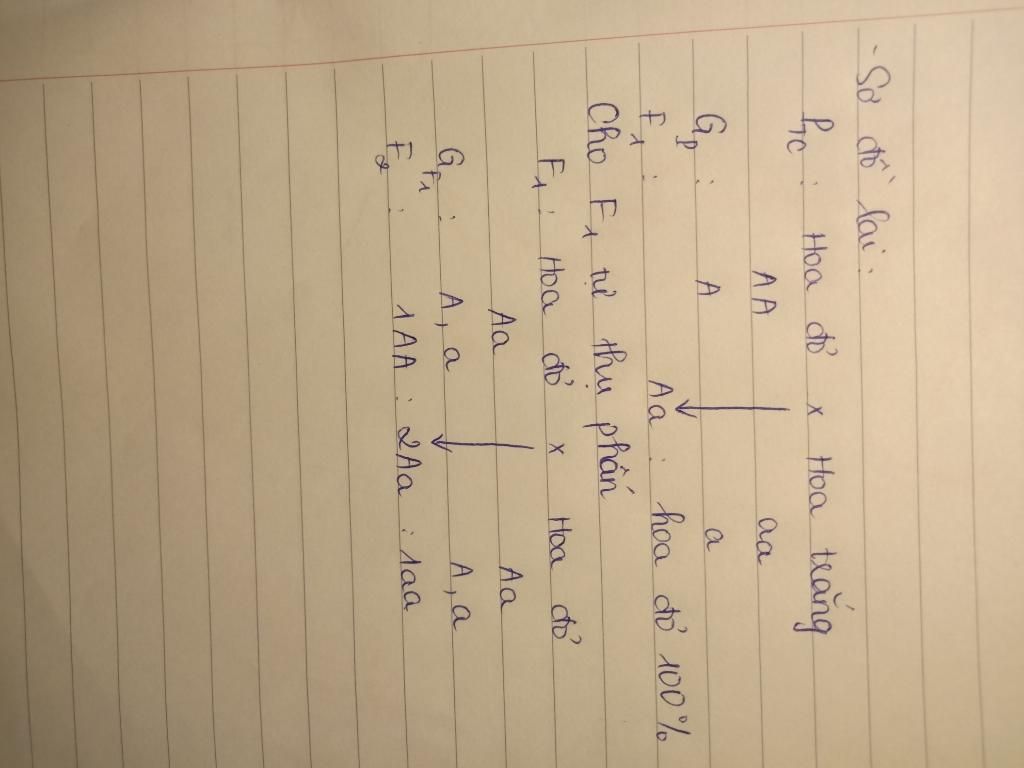 - Sơ đồ lai:
Ptc : Hoa đỏ x Hoa trắng
AA aa
Gp : A a
F1 : Aa : hoa đỏ 100%
Cho F1 tự thụ phấn
F1 : Hoa đỏ x Hoa đỏ
Aa Aa
GF1 : A, a A, a
F2 : 1AA : 2Aa : 1aa